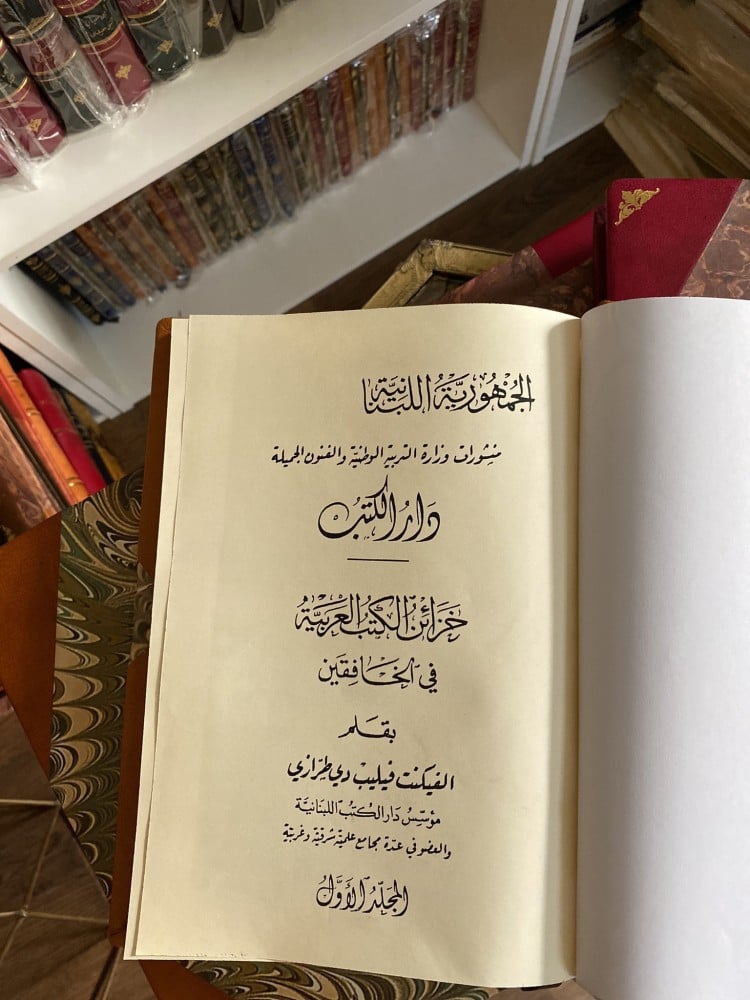 الجُمْهُوريَّة اللبنَانيَّة
منشورات وزارة التربية الوطنيّة والفنون الجميلة
دَارُ الكتُبُ
خَزَائنُ الكتُبُ العَرَبيَّة
في الخَافِقَين
بقَلم
الفيكنت فيليب دي طرّازي
مؤسّس دَار الكتبُ اللبنَانيَّة
والعضو في عدّة مجامع علميّة شرقيّة وغربيّة
المجَلّدُ الأوَّلُ